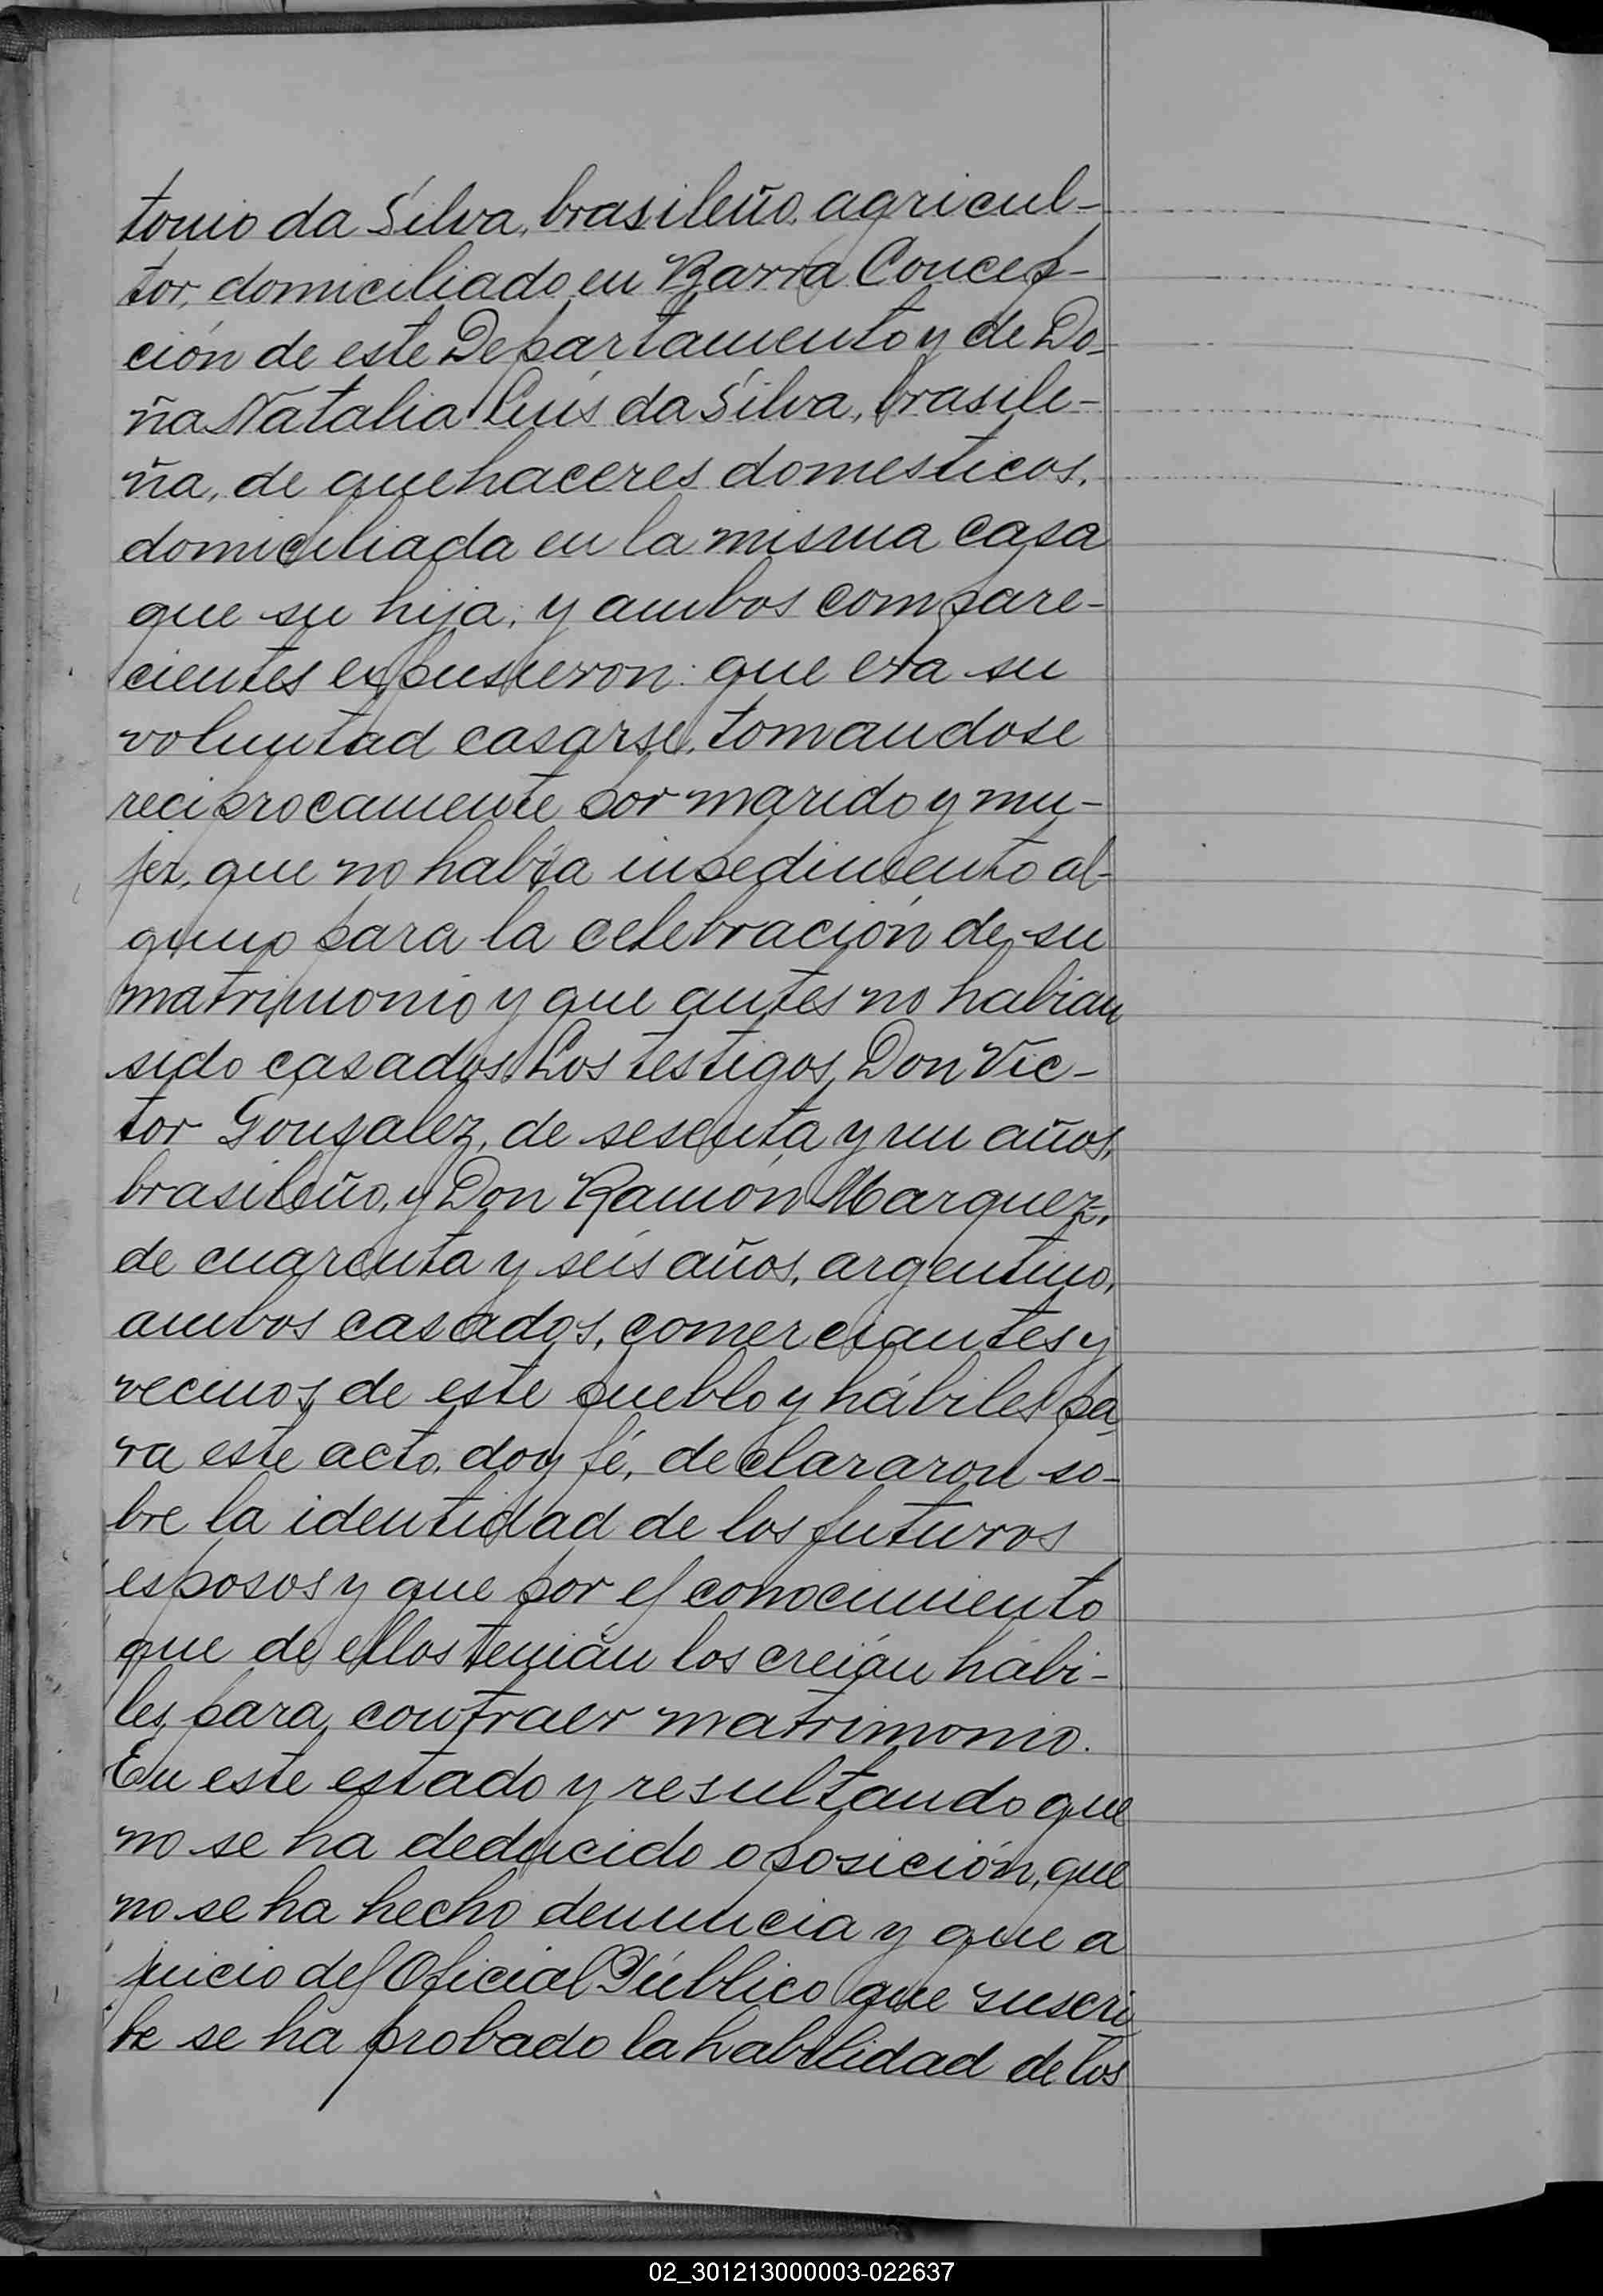 tonio da Silva, brasileño, agricul-
tor, domiciliado en Barra Concep-
ción de este Departamento y de Do-
ña Natalia Luis da Silva, brasile-
ña, de quehaceres domesticos,
domiciliada en la misma casa
que su hija; y ambos compare-
cientes expusieron: que era su
voluntad casarse, tomandose
reciprocamente por marido y mu-
jer, que no había impedimento al-
guno para la celebración de su
matrimonio y que antes no habian
sido casados. Los testigos, Don Vic-
tor Gonzalez, de sesenta y un años,
brasileño, y Don Ramón Marquez,
de cuarenta y seis años, argentino,
ambos casados, comerciantes y
vecinos de este pueblo y hábiles pa-
ra este acto, doy fé, declararon so-
bre la identidad de los futuros
esposos y que por el conocimiento
que de ellos tenían los creían hábi-
les para contraer matrimonio.
En este estado y resultando que
no se ha deducido oposición, que
no se ha hecho denuncia y que a
juicio del Oficial Público que suscri
be se ha probado la habilidad de los
02_301213000003-022637